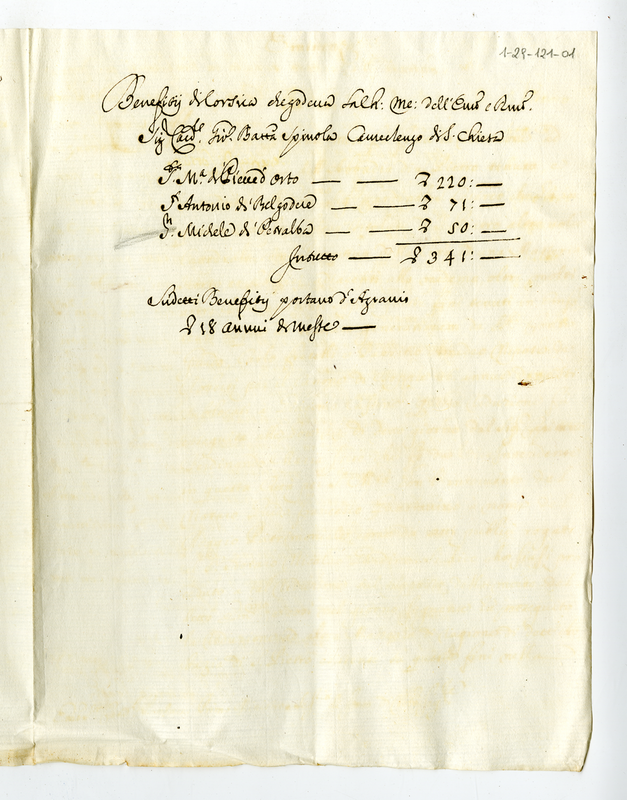 1-29-121-01
Benefitij di Corsica che godeva la h: me: dell'Em.o e Rmo.
Sig. Card.l Gio. Batta Spinola Camerlengo di S. Chiesa
S. M.a di Pieve d'Orto — — 220: —
S. Antonio di Belgodere — — 71: —
S. Michele di — — 50: —
In tutto — 341: —
Sudetti Benefitij portano d'Agravio
18 annui di Messe —